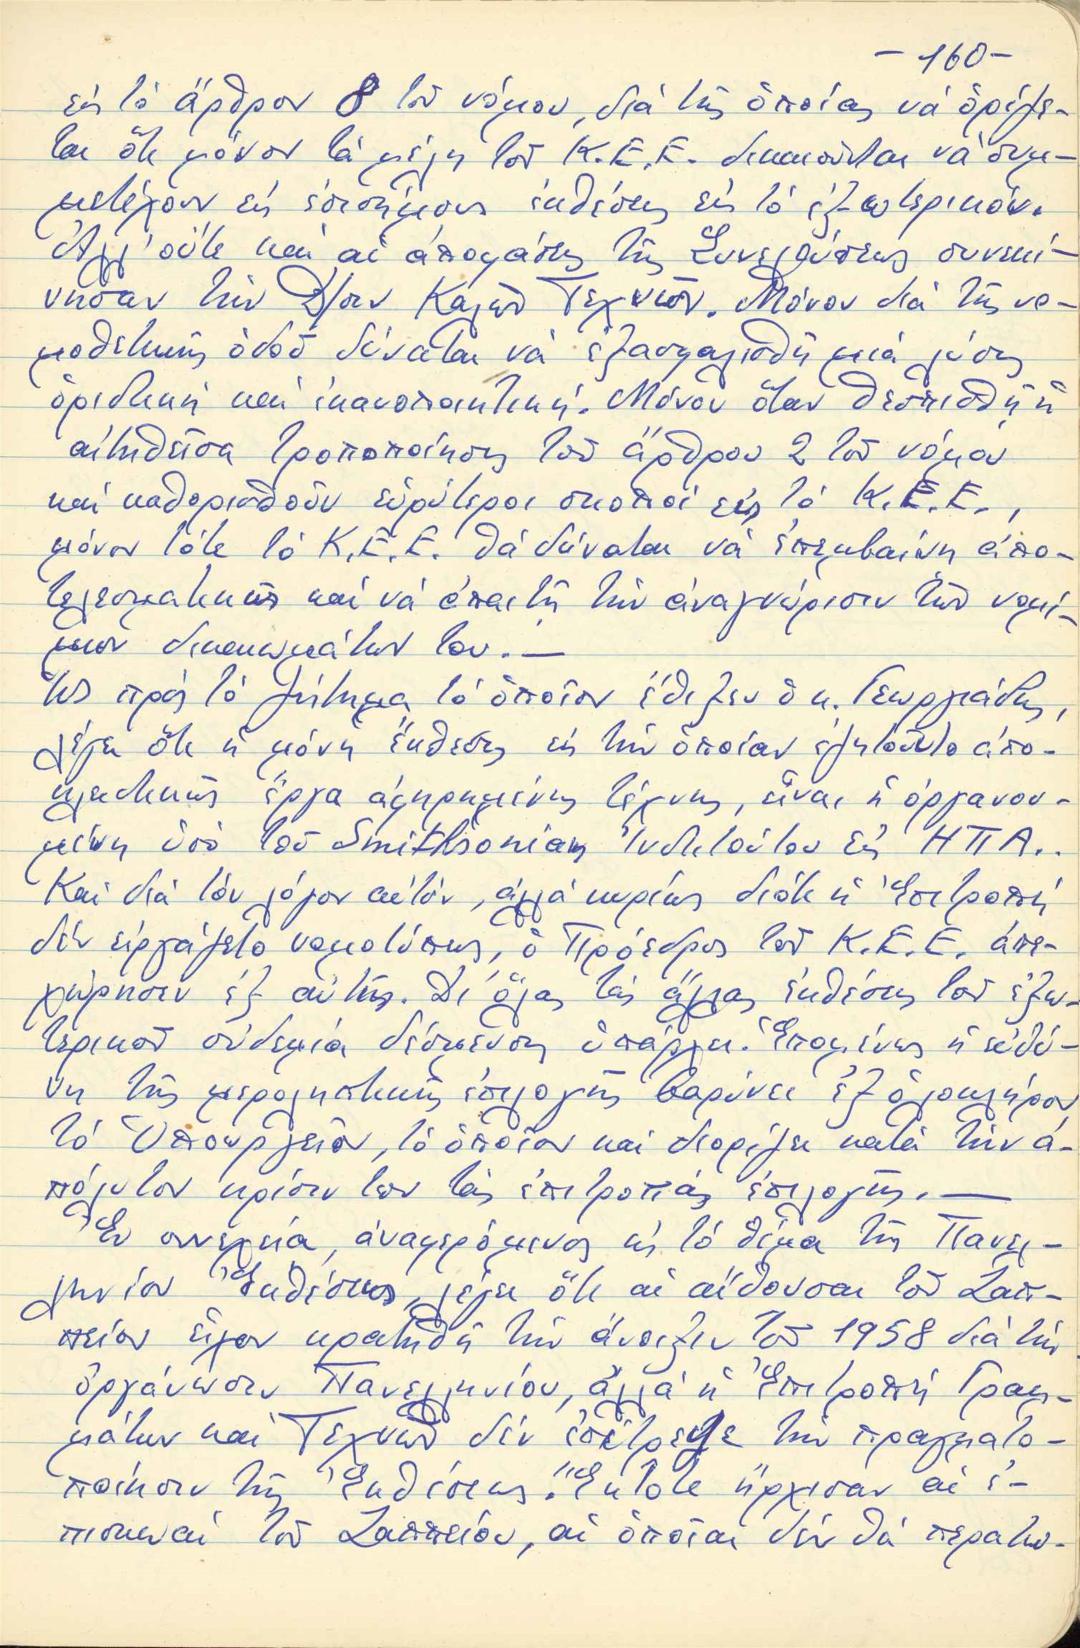 -160-
εἰς τό ἄρθρον 8 τοῦ νόμου, διά τῆς ὁποίας νά ὁρίζε-
ται ὅτι μόνον τά μέλη τοῦ Κ.Ε.Ε. δικαιοῦνται νά συμ-
μετέχουν εἰς ἐπισήμους ἐκθέσεις εἰς τό ἐξωτερικόν.
Ἀλλ' οὔτε καί αἱ ἀποφάσεις τῆς Συνελεύσεως συνεκί-
νησαν τήν Δ/σιν Καλῶν Τεχνῶν. Μόνον διά τῆς νο-
μοθετικῆς ὁδοῦ δύναται νά ἐξασφαλισθῆ μιά λύσις
ὁριστική καί ἱκανοποιητική. Μόνον ὅταν θεσπισθῆ ἡ
αἰτηθεῖσα τροποποίησις τοῦ ἄρθρου 2 τοῦ νόμου
καί καθορισθοῦν εὐρύτεροι σκοποί εἰς τό Κ.Ε.Ε.,
μόνον τότε τό Κ.Ε.Ε. θά δύναται νά ἐπεμβαίνη ἀπο-
τελεσματικῶς καί νά ἀπαιτῆ τήν ἀναγνώρισιν τῶν νομί-
μων δικαιωμάτων του.—
Ὡς πρός τό ζήτημα τό ὁποῖον ἔθιξεν ὁ κ. Γεωργιάδης,
λέγει ὅτι ἡ μόνη ἔκθεσις εἰς τήν ὁποίαν ἐζητοῦντο ἀπο-
κλειστικῶς ἔργα ἀφηρημένης τέχνης, εἶναι ἡ ὀργανου-
μένη ὑπό τοῦ Smithsonian Ἰνστιτούτου εἰς ΗΠΑ..
Καί διά τόν λόγον αὐτόν, ἀλλά κυρίως διότι ἡ Ἐπιτροπή
δέν εἰργάζετο νομοτύπως, ὁ Πρόεδρος τοῦ Κ.Ε.Ε. ἀπε-
χώρησεν ἐξ αὐτῆς. Δι' ὅλας τάς ἄλλας ἐκθέσεις τοῦ ἐξω-
τερικοῦ οὐδεμία δέσμευσις ὑπάρχει. Ἑπομένως ἡ εὐθύ-
νη τῆς μεροληπτικῆς ἐπιλογῆς βαρύνει ἐξ ὁλοκλήρου
τό Ὑπουργεῖον, τό ὁποῖον καί διορίζει κατά τήν ἀ-
πόλυτον κρίσιν του τάς ἐπιτροπάς ἐπιλογῆς.—
Ἐν συνεχεία, ἀναφερόμενος εἰς τό θέμα τῆς Πανελ-
ληνίου Ἐκθέσεως, λέγει ὅτι αἱ αἴθουσαι τοῦ Ζαπ-
πείου εἶχον κρατηθῆ τήν ἄνοιξιν τοῦ 1958 διά τήν
ὀργάνωσιν Πανελληνίου, ἀλλά ἡ Ἐπιτροπή Γραμ-
μάτων καί Τεχνῶν δέν ἐπέτρεψε τήν πραγματο-
ποίησιν τῆς Ἐκθέσεως. Ἔκτοτε ἤρχισαν αἱ ἐ-
πισκευαί τοῦ Ζαππείου, αἱ ὁποῖαι δέν θά περατω-